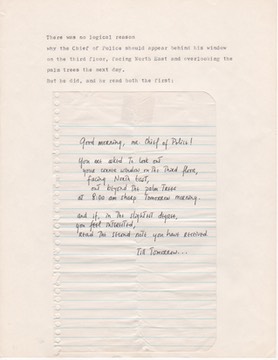 There was no logical reason
why the Chief of Police should appear behind his window
on the third floor, facing North East and overlooking the
palm trees the next day.
But he did, and he read both the first:
Good morning, mr Chief of Police!
You are asked to look out
your corner window on the third floor,
facing North East,
out beyond the palm trees
at 8:00 am sharp tomorrow morning.
and if, in the slightest degree,
you feel interested,
read the second note you have received.
Till Tomorrow...